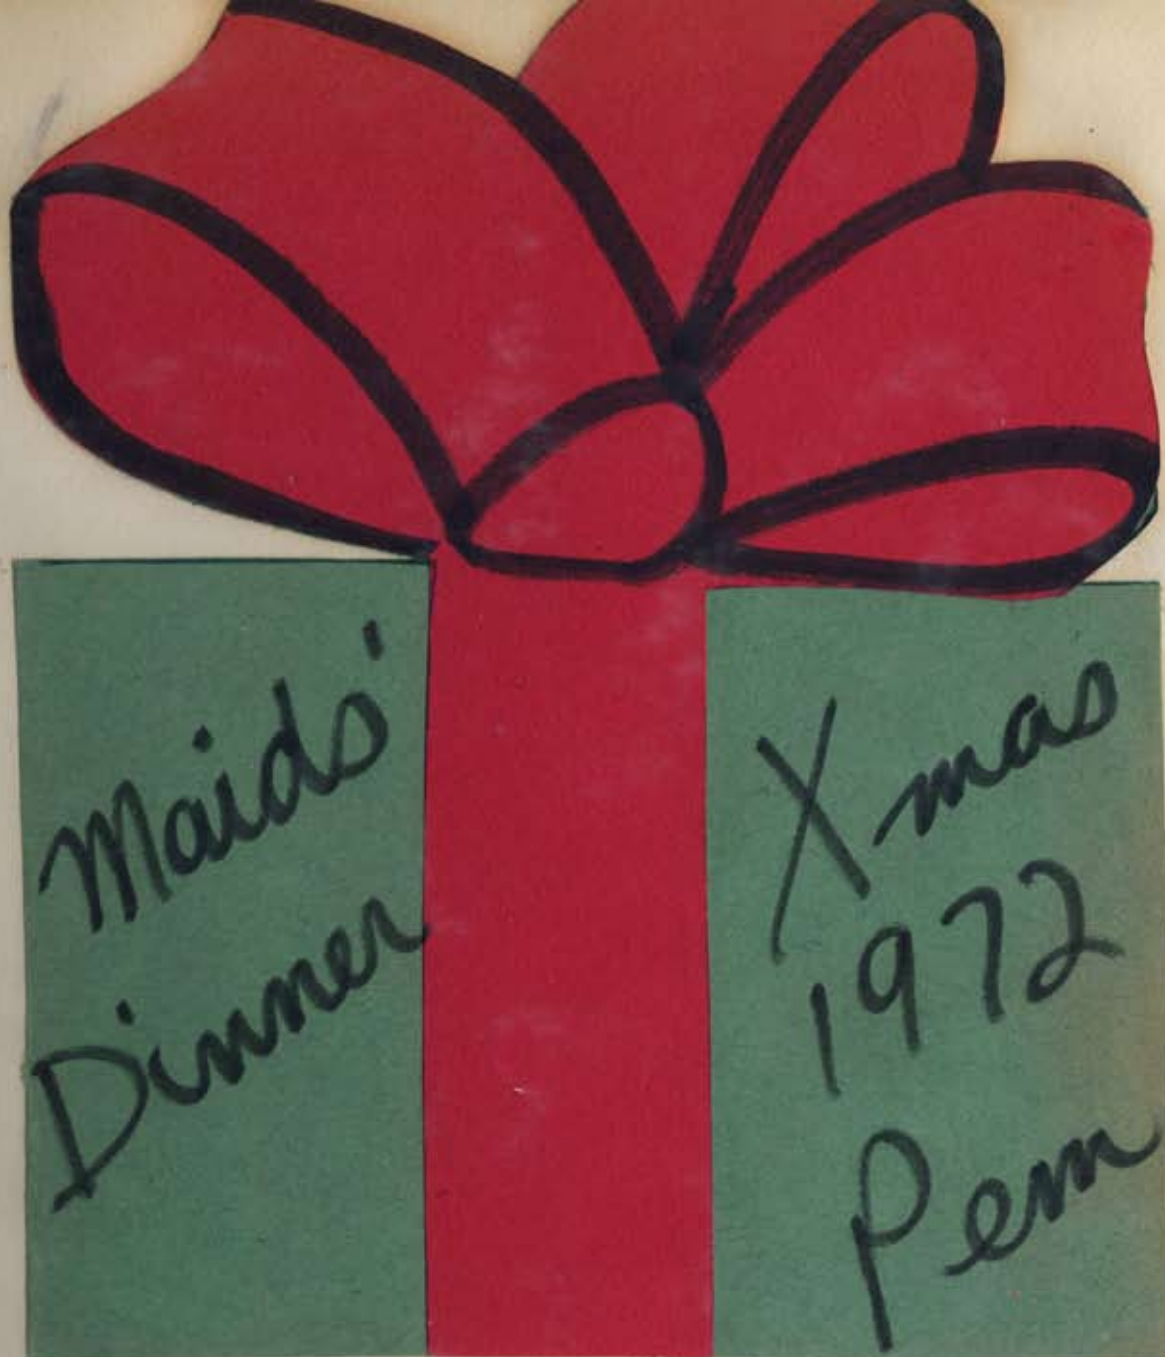 Maids'
Dinner
Xmas
1972
Pem